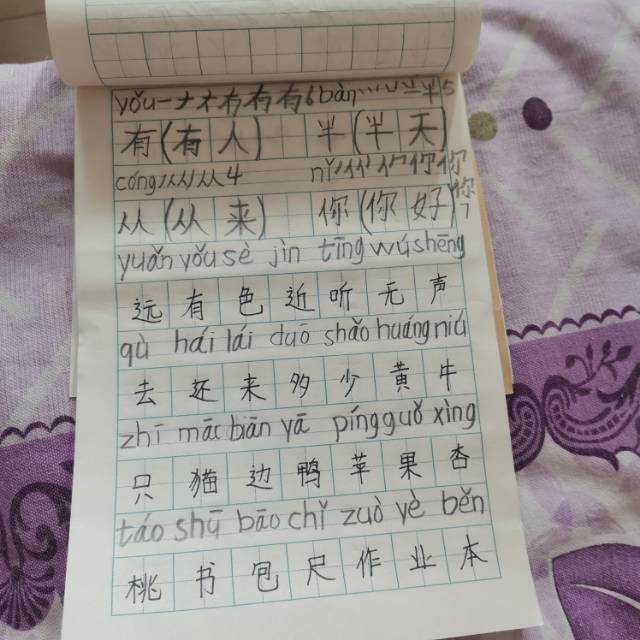 yǒu一ナオ冇有有6 bàn丶丷䒑半5
有(有人) 半(半天)
cóng丿从从4 nǐ丿亻你你
从(从来) 你(你好)你7
yuǎn yǒu sè jìn tīng wú shēng
远有色近听无声
qù hái lái duō shǎo huáng niú
去还来多少黄牛
zhī māo biān yā píng guǒ xìng
只猫边鸭苹果杏
táo shū bāo chǐ zuò yè běn
桃书包尺作业本